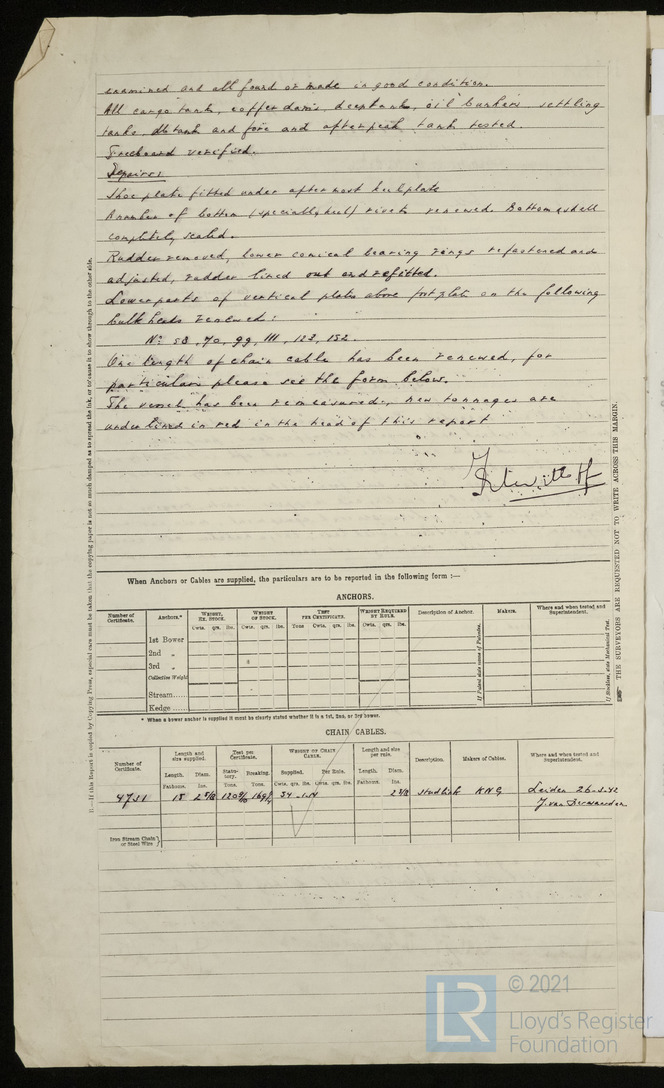 examined and all found or made in good condition.
All cargo tanks, cofferdams, deeptank, oil bunkers, settling
tanks, dbtank and fore and afterpeak tank tested.
Freeboard verified.
Repairs:
Shoe plate fitted under aftermost keelplate
A number of bottom (specially keel) rivets renewed. Bottom & shell
completely scaled.
Rudder removed, lower conical bearing rings refastened and
adjusted, rudder lined out and refitted.
Lowerparts of vertical plates above footplate on the following
bulkheads renewed:
No 58, 70, 99, 111, 123, 152.
One length of chain cable has been renewed, for
particulars please see the form below.
The vessel has been remeasured, new tonnages are
underlined in red in the head of this report
When Anchors or Cables are supplied, the particulars are to be reported in the following form :—
ANCHORS.
Number of Certificate. Anchors.* WEIGHT, EX. STOCK. WEIGHT OF STOCK. TEST PER CERTIFICATE. WEIGHT REQUIRED BY RULE. Description of Anchor. Makers. Where and when tested and Superintendent.
Cwts. qrs. lbs. Cwts. qrs. lbs. Tons Cwts. qrs. lbs. Cwts. qrs. lbs.
1st Bower
2nd „
3rd „
Collective Weight
Stream......
Kedge......
If Patent state name of Patentee.
If Stockless, state Mechanical Test.
* When a bower anchor is supplied it must be clearly stated whether it is a 1st, 2nd, or 3rd bower.
CHAIN CABLES.
Number of Certificate. Length and size supplied. Test per Certificate. WEIGHT OF CHAIN CABLE. Length and size per rule. Description. Makers of Cables. Where and when tested and Superintendent.
Length. Diam. Statutory. Breaking. Supplied. Per Rule. Length. Diam.
Fathoms. Ins. Tons. Tons. Cwts. qrs. lbs. Cwts. qrs. lbs. Fathoms. Ins.
4751 15 2 5/8 34 2 5/8 studlink KNG Leiden 26-5-42
J. van
Iron Stream Chain or Steel Wire }
II.—If this Report is copied by Copying Press, especial care must be taken that the copying paper is not so much damped as to spread the ink, or to cause it to show through to the other side.
THE SURVEYORS ARE REQUESTED NOT TO WRITE ACROSS THIS MARGIN.
LR
© 2021
Lloyd's Register
Foundation